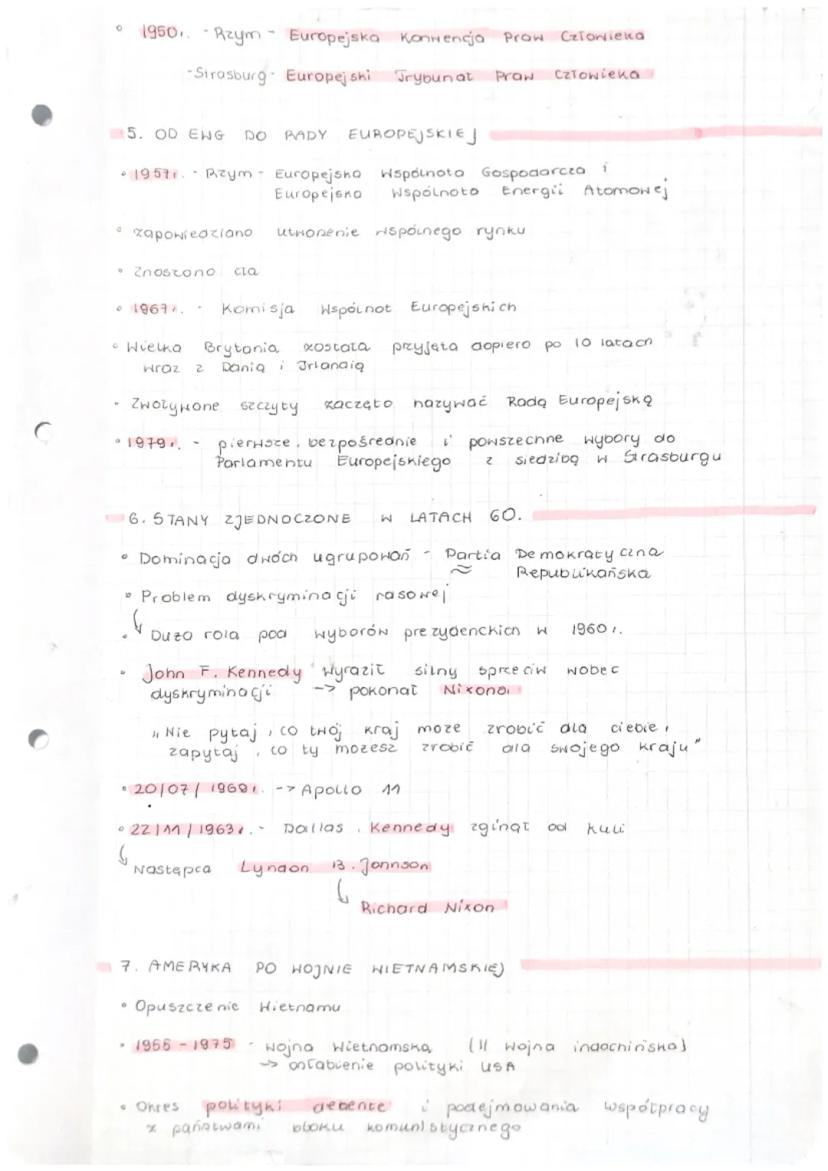 • 1950r. - Rzym - Europejska Konwencja Praw Człowieka
- Strasburg - Europejski Trybunał Praw Człowieka
5. OD EWG DO RADY EUROPEJSKIEJ
• 1957r. - Rzym - Europejska Wspólnota Gospodarcza i
Europejska Wspólnota Energii Atomowej
• zapowiedziano utworzenie wspólnego rynku
• Znoszono cła
• 1967r. - Komisja Wspólnot Europejskich
• Wielka Brytania została przyjęta dopiero po 10 latach
wraz z Danią i Irlandią
• Zwoływane szczyty zaczęto nazywać Radą Europejską
• 1979r. - pierwsze, bezpośrednie i powszechne wybory do
Parlamentu Europejskiego z siedzibą w Strasburgu
6. STANY ZJEDNOCZONE W LATACH 60.
• Dominacja dwóch ugrupowań - Partia Demokratyczna
≈ Republikańska
• Problem dyskryminacji rasowej
• ↳ Duża rola pod wyborów prezydenckich w 1960r.
• John F. Kennedy wyraził silny sprzeciw wobec
dyskryminacji -> pokonał Nixona
„Nie pytaj, co twój kraj może zrobić dla ciebie,
zapytaj, co ty możesz zrobić dla swojego kraju"
• 20/07/1969r. -> Apollo 11
• 22/11/1963r. - Dallas, Kennedy zginął od kuli
↳ Następca Lyndon B. Johnson
↳ Richard Nixon
7. AMERYKA PO WOJNIE WIETNAMSKIEJ
• Opuszczenie Wietnamu
• 1955 - 1975 - Wojna Wietnamska (II wojna indochińska)
-> osłabienie polityki USA
• Okres polityki detente i podejmowania współpracy
z państwami bloku komunistycznego